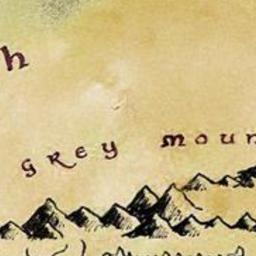 h
grey moun